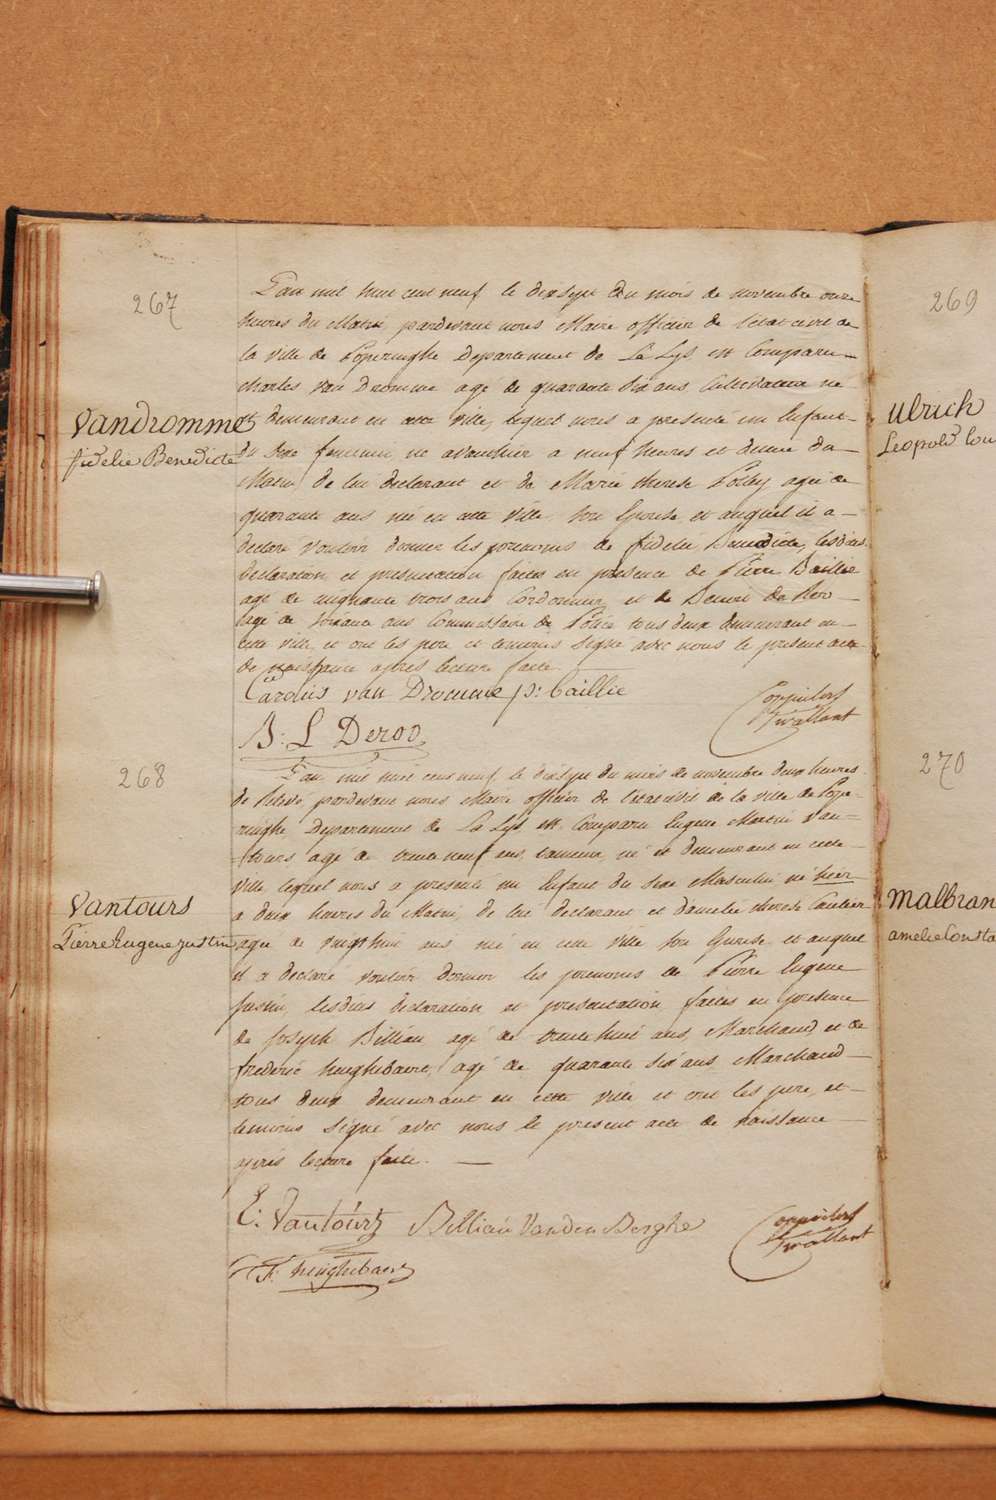 267
Vandromme
fidelie Benedicte
L'an mil huit cent neuf le dix sept du mois de novembre onze
heures du Matin, pardevant nous Maire officier de l'état civil de
la ville de Poperinghe Departement de La Lys est Comparu
charles Van Dromme agé de quarante six ans Cultivateur né
et demeurant en cette ville, lequel nous a presenté un Enfant
du sexe feminin, né avanthier a neuf heures et demie du
Matin, de lui declarant et de Marie therese agée de
quarante ans née en cette ville son Epouse et auquel il a
declaré vouloir donner les prenoms de fidelie Benedicte, lesdites
declaration et presentation faites en presence de Pierre Baillie
agé de cinquante trois ans Cordonnier et de
agé de soixante ans Commissaire de Police tous deux demeurant en
cette ville, et ont les pere et temoins signé avec nous le present acte
de naissance après lecture faite.
Carolus van Dromme p: baillie
B: L Deroo
268
Vantours
Pierre Eugene Justin
L'an mil huit cent neuf, le dix sept du mois de novembre deux heures
de relevé, pardevant nous Maire officier de l'état civil de la ville de Pope-
ringhe, Departement de La Lys est Comparu Eugene Martin Van-
tours agé de trente neuf ans, tanneur, né et demeurant en cette
ville lequel nous a presenté un Enfant du sexe Masculin né hier
a deux heures du Matin, de lui declarant et d'amelie therese
agée de vingt huit ans née en cette ville son Epouse et auquel
il a declaré vouloir donner les prenoms de Pierre Eugene
Justin, lesdites declaration et presentation faites en presence
de Joseph Billiau agé de trente huit ans, Marchand et de
frederic heughebaert, agé de quarante six ans Marchand
tous deux demeurant en cette ville et ont les pere, et
temoins signé avec nous le present acte de naissance
après lecture faite.
E. Vantours Billiau VandenBerghe
F. heughebaert
269
ulrich
Leopold Lou
270
Malbran
amelie Consta